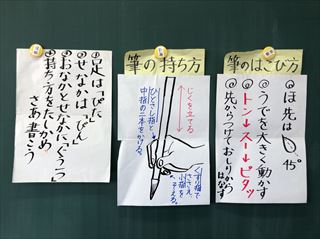 ①足は「ぴた」
②せなかは「ぴん」
③おなかとせなかに「ぐう一つ」
④持ち方をたしかめ
さあ書こう
筆の持ち方
じくを立てる
ひとさし指と
中指の二本をかける。
くすり指で
ささえ、
小指を
そえる。
筆のはこび方
①ほ先は
45°
②うでを大きく動かす
トン→スー→ピタッ
③先からつけておしりから
はなす